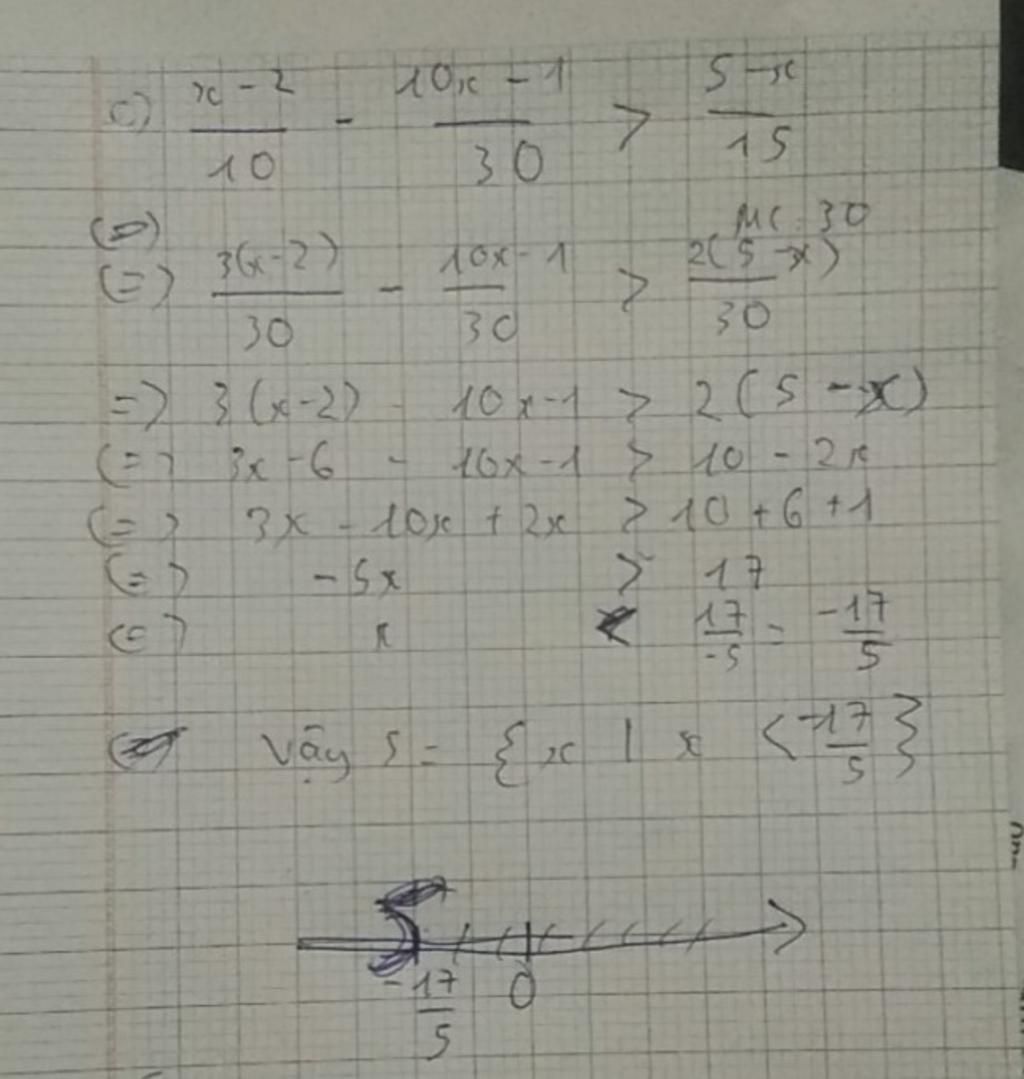 c) x - 2 / 10 - 10x - 1 / 30 > 5 - x / 15
MC: 30
(=) 3(x - 2) / 30 - 10x - 1 / 30 > 2(5 - x) / 30
=) 3(x - 2) - 10x - 1 > 2(5 - x)
(=) 3x - 6 - 10x - 1 > 10 - 2x
(=) 3x - 10x + 2x > 10 + 6 + 1
(=) -5x > 17
(=) x < 17 / -5 = -17 / 5
Vậy S = { x | x < -17 / 5 }
-17 / 5 0